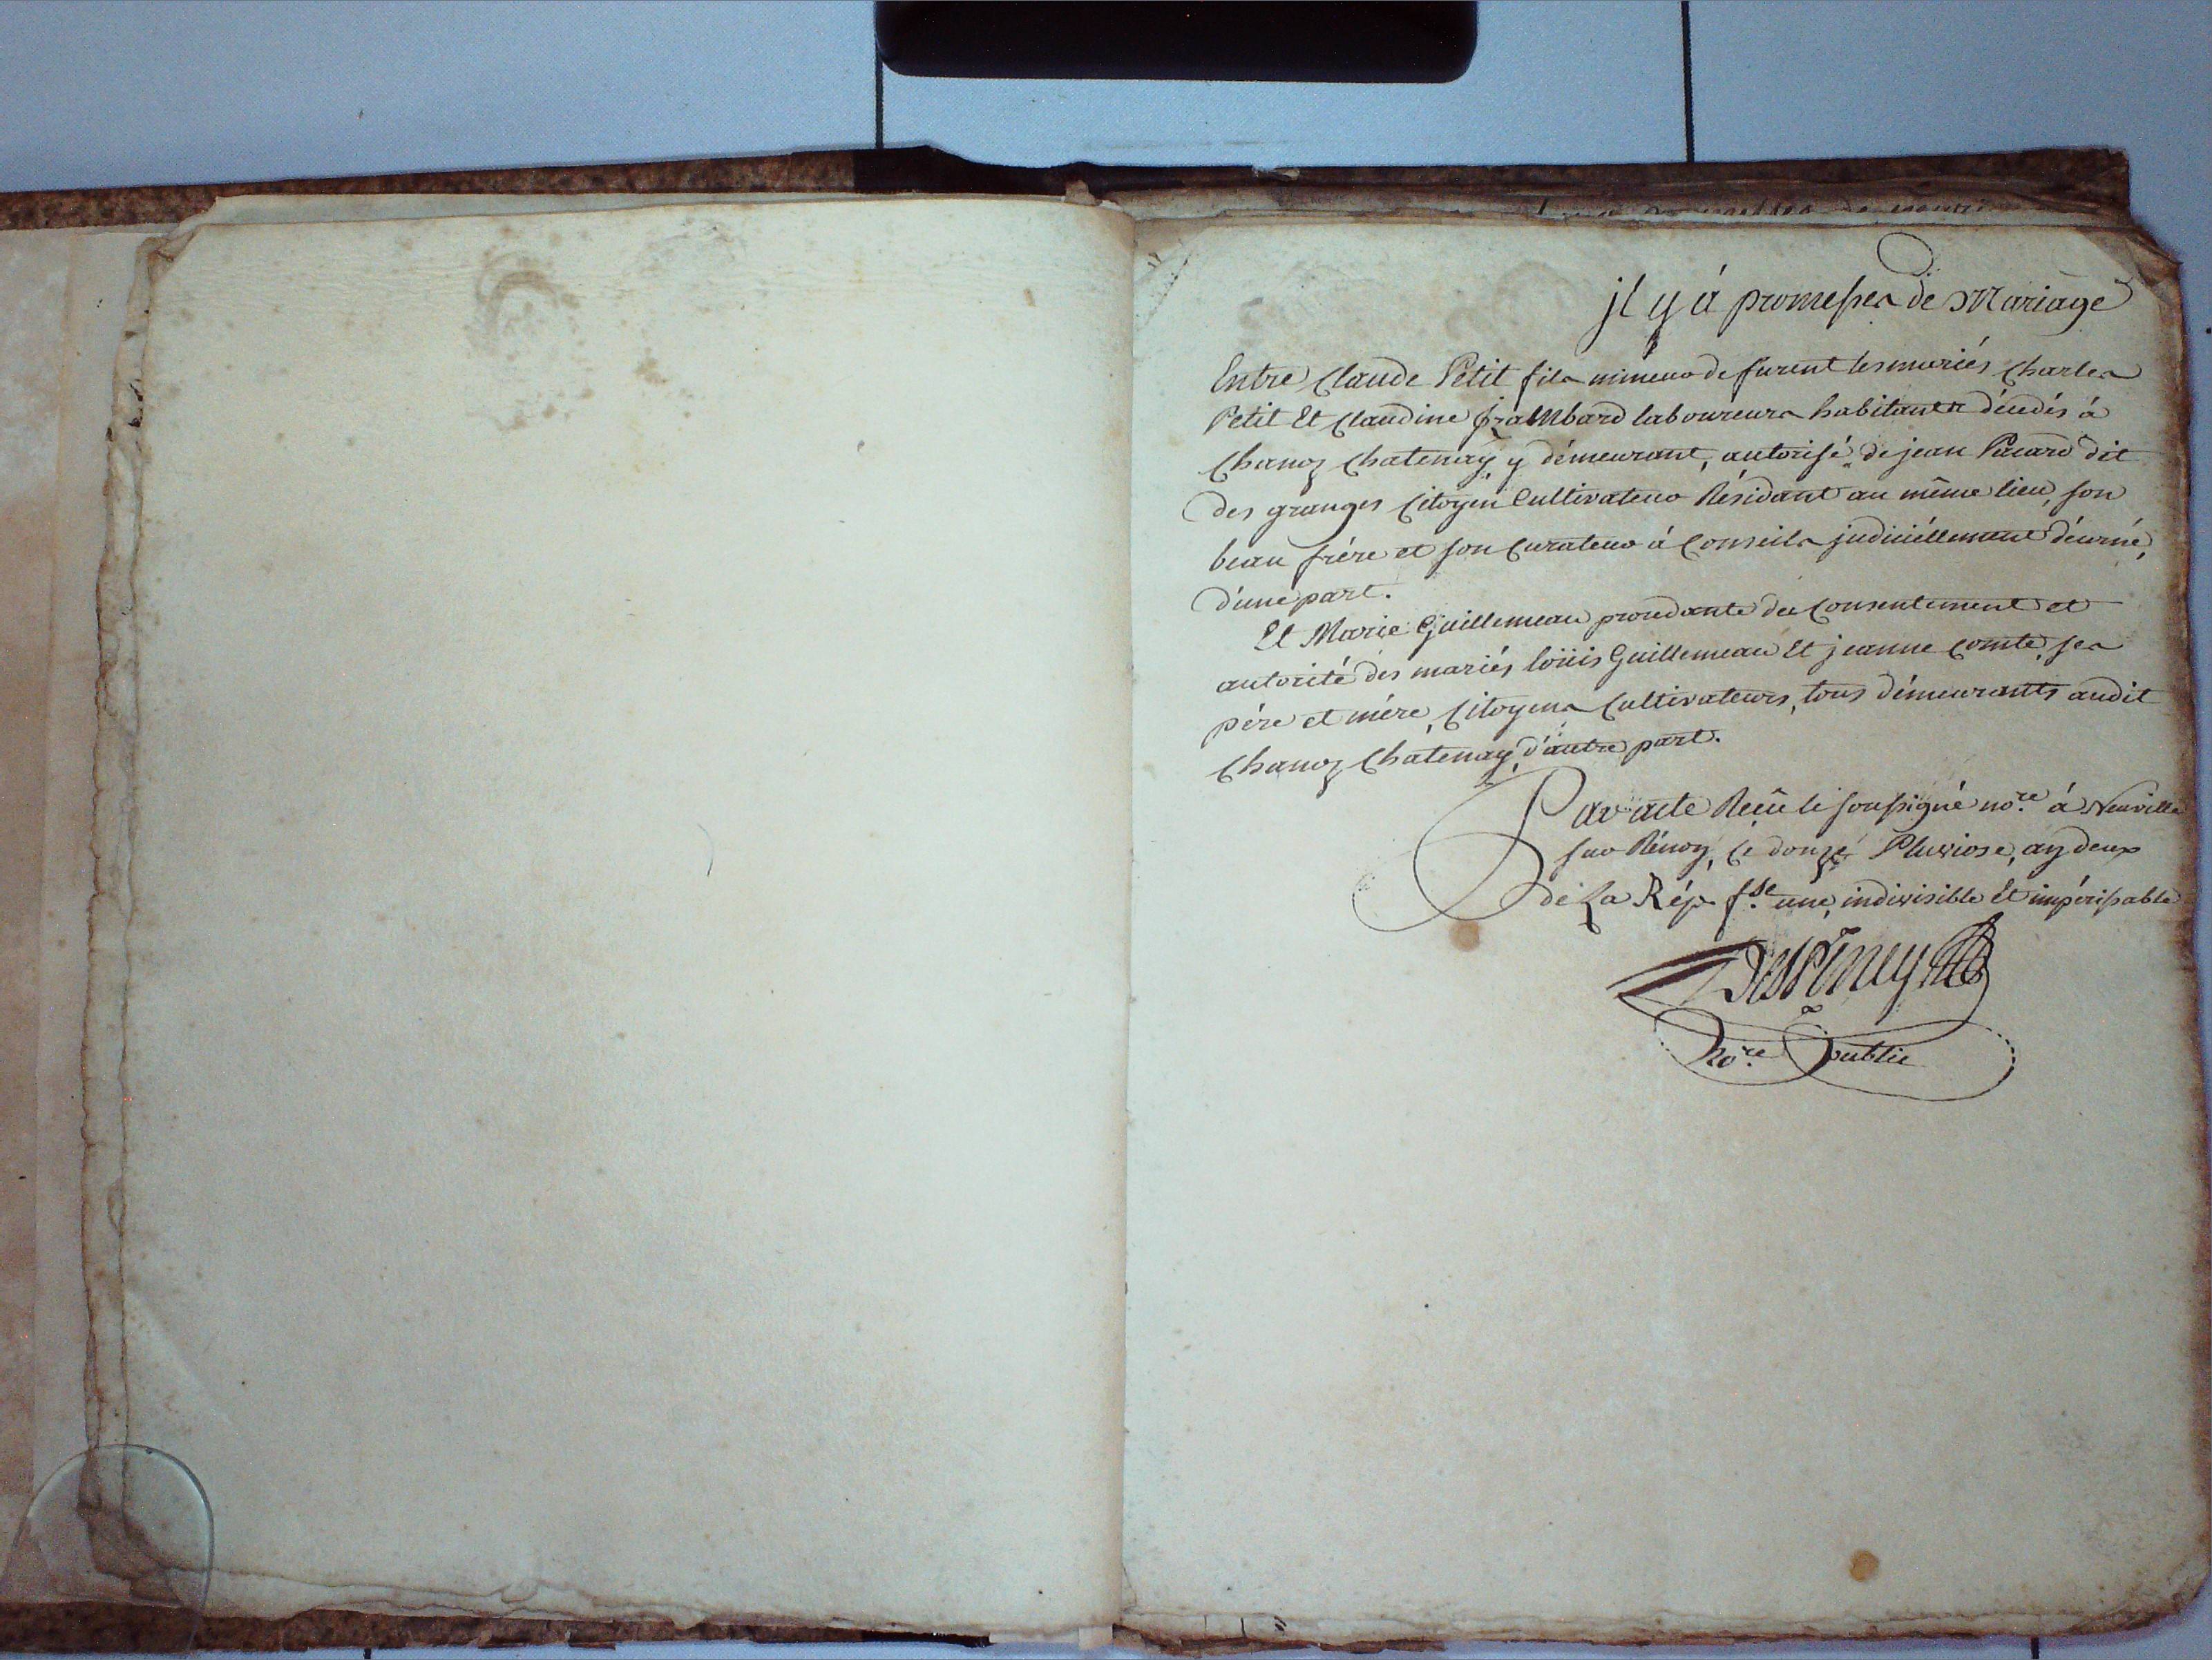 jl y á promesses de Mariage
Entre Claude Petit fils mineur de furent les mariés Charles
Petit Et Claudine frambard laboureurs habitants décédés á
Chanoz Chatenay y démeurant, autorisé de jean Pacard dit
des granges Citoyen Cultivateur Résidant au même lieu, son
beau frére et son Curateur á Conseils judiciéllement décerné,
d'une part.
Et Marie Guillemeau procédante du Consentement et
autorité des mariés loüis Guillemeau Et jeanne Comte, ses
pére et mére, Citoyens Cultivateurs, tous démeurants audit
Chanoz Chatenay, d'autre part.
Par acte Reçû le soussigné no.re á Neuville
sur Rénon, Ce douze Pluviose, an deux
de La Rép. f.se une, indivisible Et impérissable
no.re Public